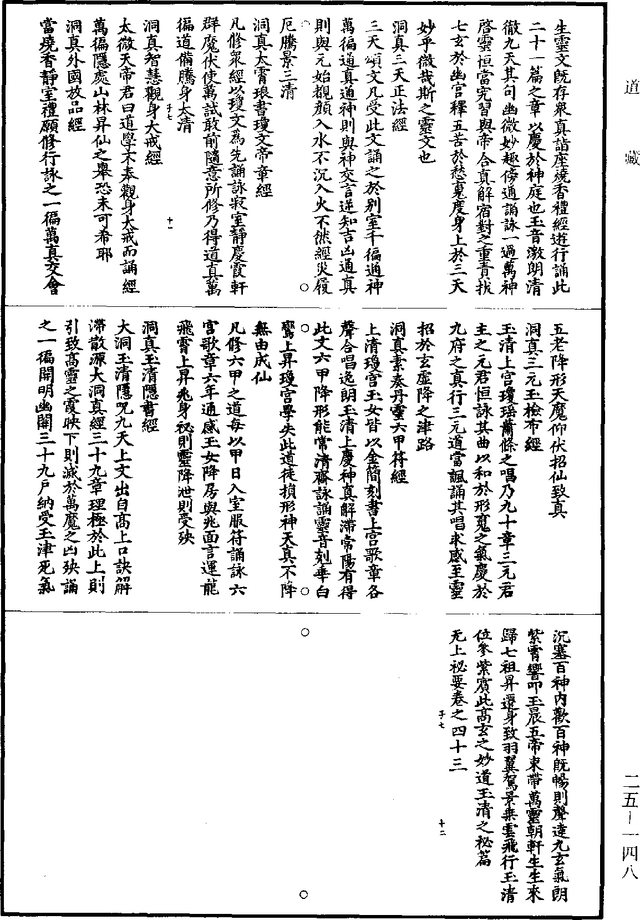 道藏
生靈文既存衆真詣座燒香禮經遊行誦此
二十一篇之章以慶於神庭也玉音激朗清
徹九天其句幽微妙趣傍通誦詠一過萬神
啓靈恒當究習與帝合真解宿對之重責拔
七玄於幽官釋五苦於愁㒹度身上於三天
妙乎微哉斯之靈文也
洞真三天正法經
三天頌文凡受此文誦之於别室千徧通神
萬徧道真通神則與神交言逆知吉凶通真
則與元始覩顔入水不沉入火不㷼經災履
厄騰景三清
洞真太霄琅書瓊文帝章經
凡修衆經以瓊文為先誦詠㝷室靜慶霞軒
群魔伏使萬試敢前隨意所修乃得道真萬
徧道備騰身太清
子七
十一
洞真智慧觀身大戒經
太微天帝君曰道學不奉觀身大戒而誦經
萬徧隱處山林昇仙之舉恐未可希耶
洞真外國放品經
當燒香静室禮願修行詠之一徧萬真交會
五老降形天魔仰伏招仙致真
洞真三元玉檢布經
玉清上宮瓊瑤蕭條之唱乃九十章三元君
主之元君恒詠其曲以和於形䰟之氣慶於
九府之真行三元道當諷誦其唱求感至靈
招於玄虛降之津路
洞真素奏丹靈六甲符經
上清瓊宮玉女皆以金簡刻書上宮歌章各
聲合唱逸朗玉清上慶神真解滯常陽有得
此文六甲降形能常清齋詠誦靈音剋乗白
鸞上昇瓊宮學失此道徒損形神天真不降
無由成仙
凡修六甲之道每以甲日入室服符誦詠六
宮歌章六年通感玉女降房與兆面言運龍
飛霄上昇飛身祕則靈降泄則受殃
洞真玉清隱書經
大洞玉清隱呪九天上文出自高上口訣解
滯散源大洞真經三十九章理極於此上則
引致高靈之霞映下則滅於萬魔之凶殃誦
之一徧開明幽關三十九户納受玉津死氣
沉塞百神内歡百神既暢則聲達九玄氣朗
紫霄響叩玉晨五帝束帶萬靈朝軒生生來
歸七祖昇遷身致羽翼駕景乗雲飛行玉清
位參紫賓此高玄之妙道玉清之祕篇
无上祕要卷之四十三
子七
十二
二五—一四八